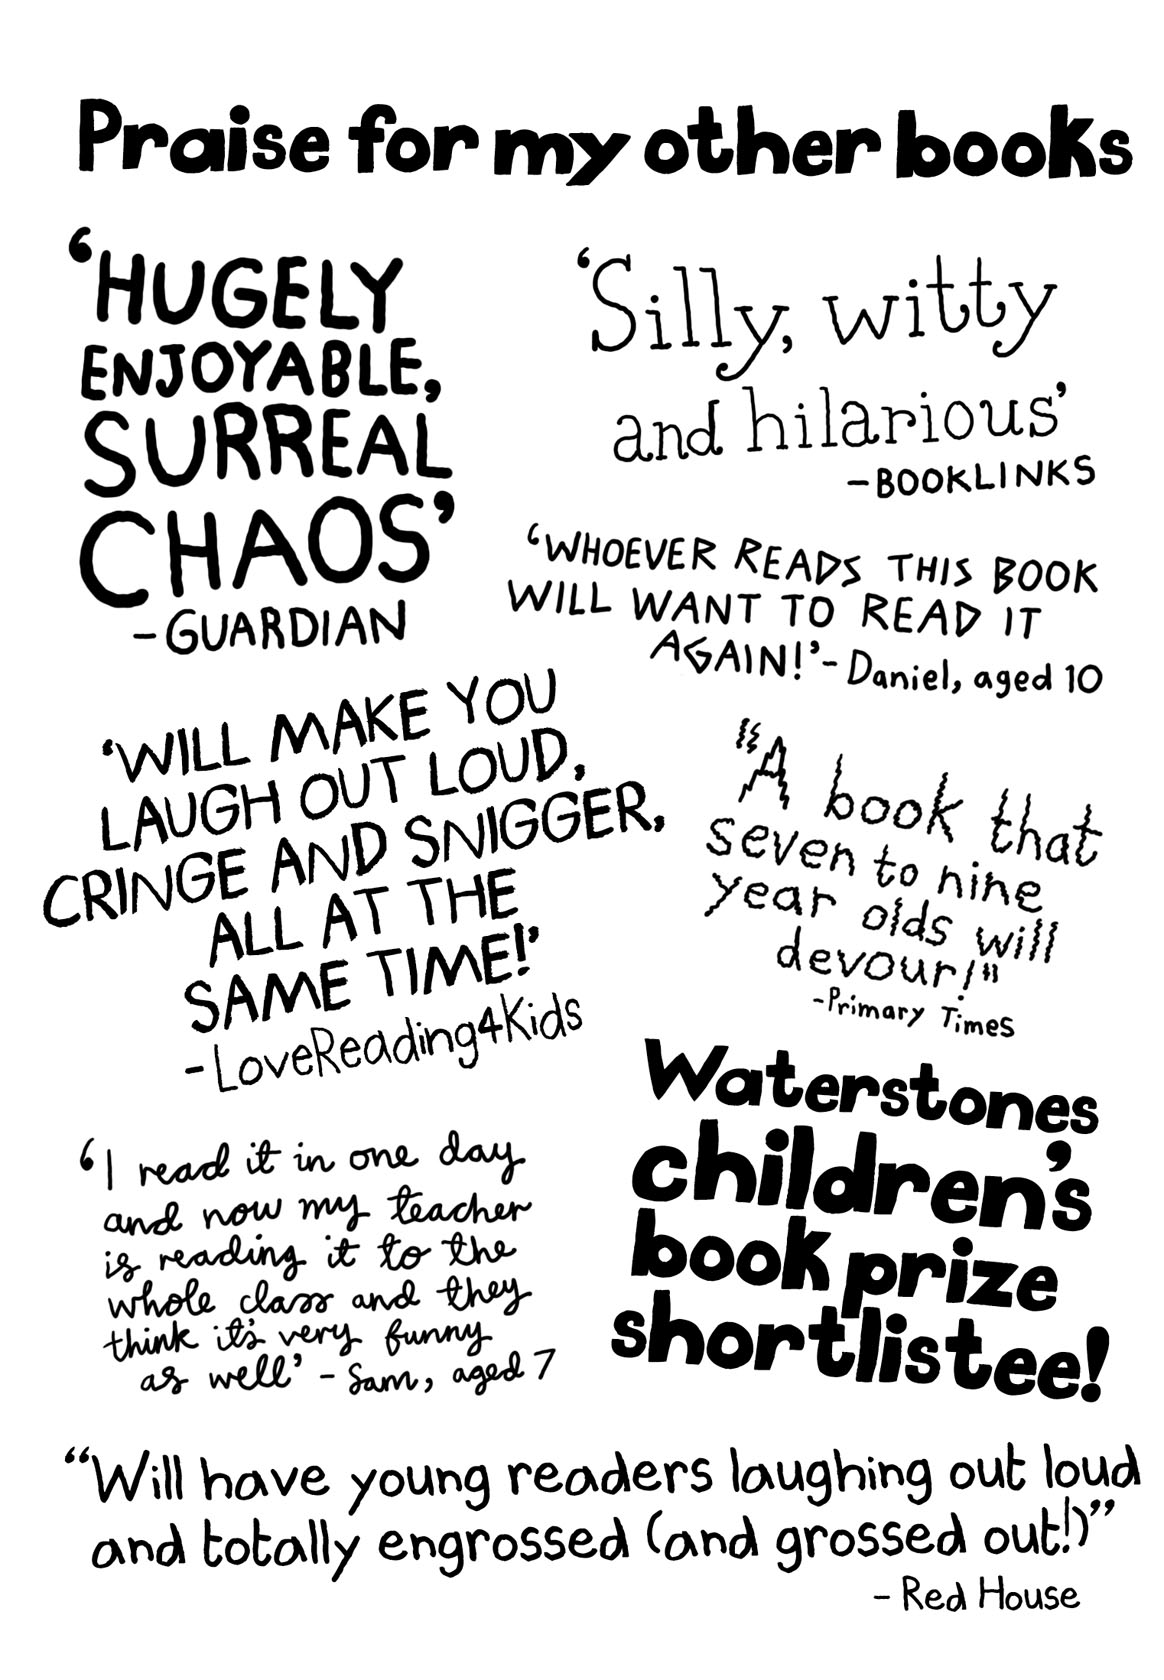 Praise for my other books
‘HUGELY
ENJOYABLE,
SURREAL
CHAOS’
–GUARDIAN
‘Silly, witty
and hilarious’
–BOOKLINKS
‘WHOEVER READS THIS BOOK
WILL WANT TO READ IT
AGAIN!’– Daniel, aged 10
‘WILL MAKE YOU
LAUGH OUT LOUD,
CRINGE AND SNIGGER,
ALL AT THE
SAME TIME!’
–LoveReading4Kids
"A book that
seven to nine
year olds will
devour!"
–Primary Times
‘I read it in one day
and now my teacher
is reading it to the
whole class and they
think it's very funny
as well’ – Sam, aged 7
Waterstones
children's
book prize
shortlistee!
“Will have young readers laughing out loud
and totally engrossed (and grossed out!)”
– Red House